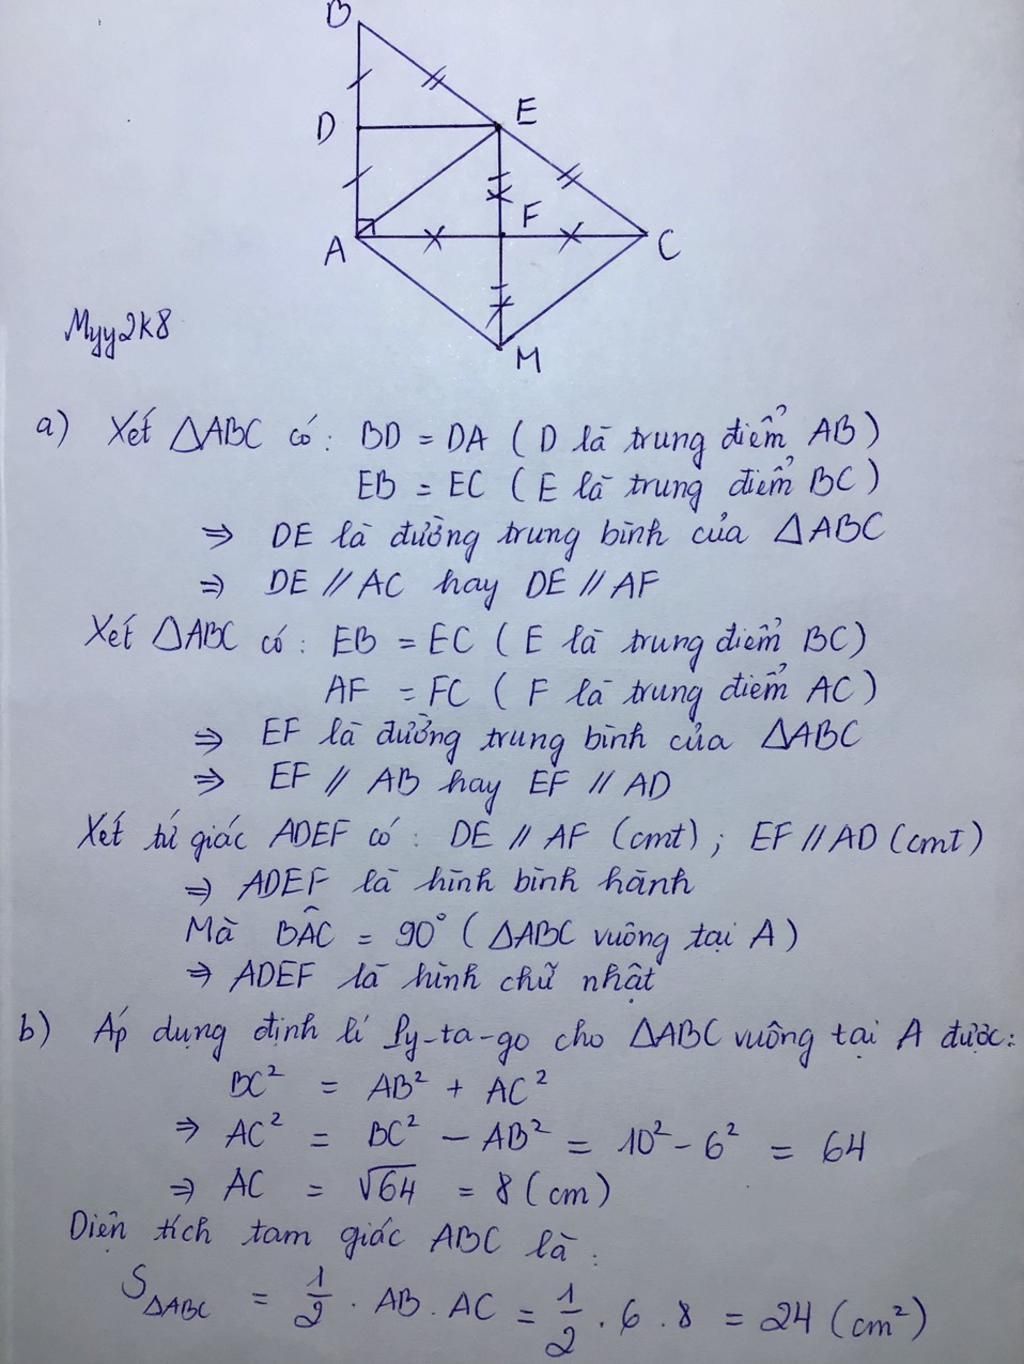 B
D
E
A
F
C
M
Myy2k8
a) Xét △ABC có: BD = DA (D là trung điểm AB)
EB = EC (E là trung điểm BC)
⇒ DE là đường trung bình của △ABC
⇒ DE // AC hay DE // AF
Xét △ABC có: EB = EC (E là trung điểm BC)
AF = FC (F là trung điểm AC)
⇒ EF là đường trung bình của △ABC
⇒ EF // AB hay EF // AD
Xét tứ giác ADEF có: DE // AF (cmt); EF // AD (cmt)
⇒ ADEF là hình bình hành
Mà BÂC = 90° (△ABC vuông tại A)
⇒ ADEF là hình chữ nhật
b) Áp dụng định lí Py-ta-go cho △ABC vuông tại A được:
BC² = AB² + AC²
⇒ AC² = BC² − AB² = 10² − 6² = 64
⇒ AC = √64 = 8 (cm)
Diện tích tam giác ABC là:
S△ABC = 1/2 . AB . AC = 1/2 . 6 . 8 = 24 (cm²)